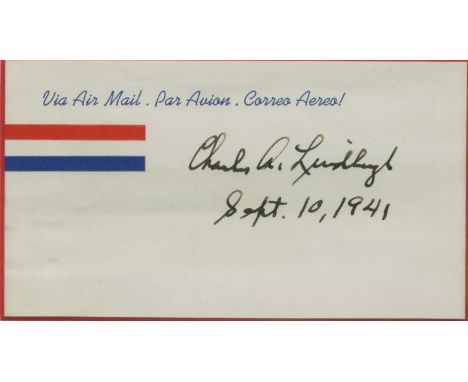 Via Air Mail . Par Avion . Correo Aereo!
Charles A. Lindbergh
Sept. 10, 1941